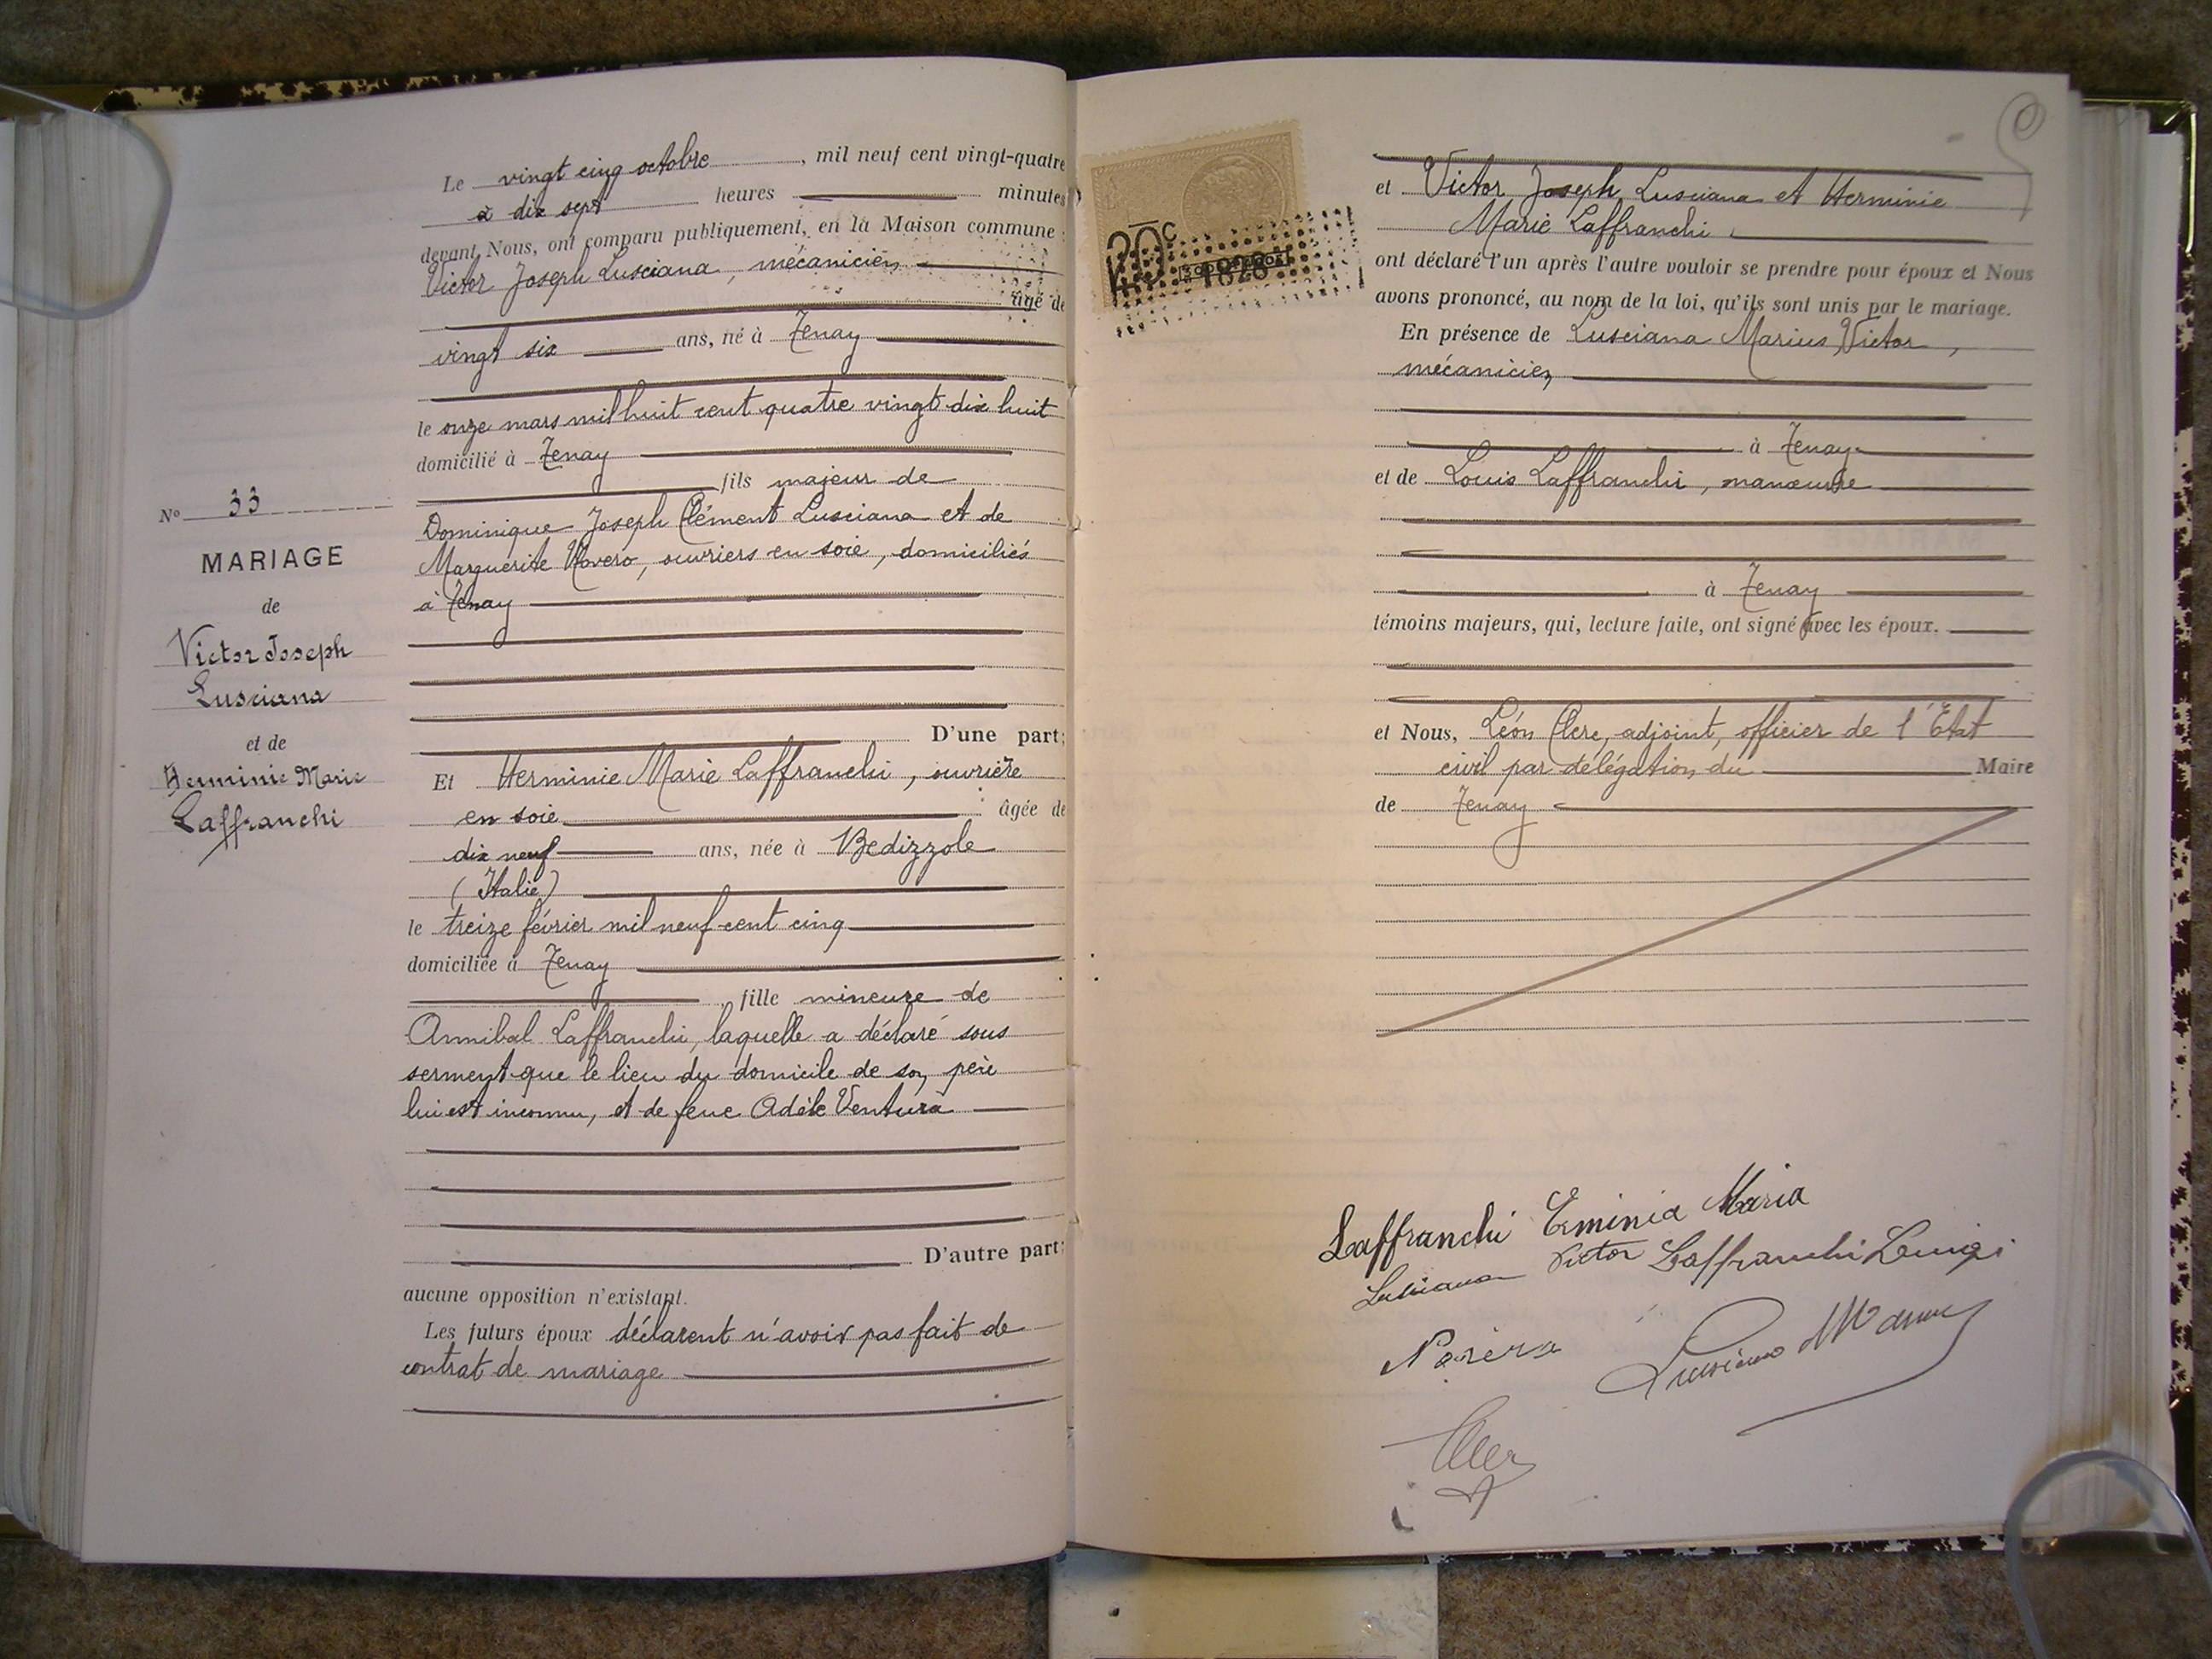 N° 33
MARIAGE
de
Victor Joseph
Lusciana
et de
Herminie Marie
Laffranchi
Le vingt cinq octobre, mil neuf cent vingt-quatre
à dix sept heures minutes
devant Nous, ont comparu publiquement, en la Maison commune :
Victor Joseph Lusciana, mécanicien
âgé de
vingt six ans, né à Tenay
le onze mars mil huit cent quatre vingt dix huit
domicilié à Tenay
fils majeur de
Dominique Joseph Clément Lusciana et de
Marguerite Novero, ouvriers en soie, domiciliés
à Tenay
D'une part;
Et Herminie Marie Laffranchi, ouvrière
en soie âgée de
dix neuf ans, née à Bedizzole
(Italie)
le treize février mil neuf cent cinq
domiciliée à Tenay
fille mineure de
Annibal Laffranchi, laquelle a déclaré sous
serment que le lieu du domicile de son père
lui est inconnu, et de feue Adèle Ventura
D'autre part:
aucune opposition n'existant.
Les futurs époux déclarent n'avoir pas fait de
contrat de mariage
20c
et Victor Joseph Lusciana et Herminie
Marie Laffranchi
ont déclaré l'un après l'autre vouloir se prendre pour époux et Nous
avons prononcé, au nom de la loi, qu'ils sont unis par le mariage.
En présence de Lusciana Marius Victor,
mécanicien
à Tenay
et de Louis Laffranchi, manœuvre
à Tenay
témoins majeurs, qui, lecture faite, ont signé avec les époux.
et Nous, Léon Clerc, adjoint, officier de l'État
civil par délégation du Maire
de Tenay
Laffranchi Erminia Maria
Lusciana Victor Laffranchi Luigi